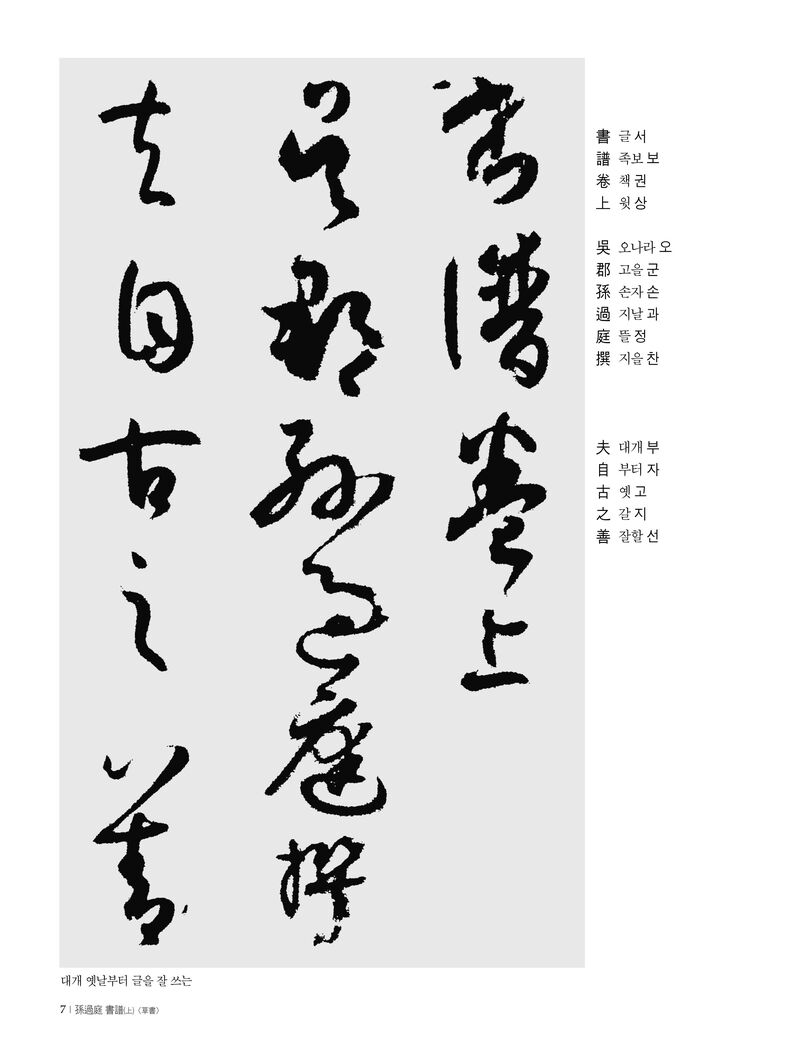 書譜卷上
吳郡孫過庭撰
夫自古之善
書 글 서
譜 족보 보
卷 책 권
上 윗 상
吳 오나라 오
郡 고을 군
孫 손자 손
過 지날 과
庭 뜰 정
撰 지을 찬
夫 대개 부
自 부터 자
古 옛 고
之 갈 지
善 잘할 선
대개 옛날부터 글을 잘 쓰는
7 | 孫過庭 書譜(上)〈草書〉